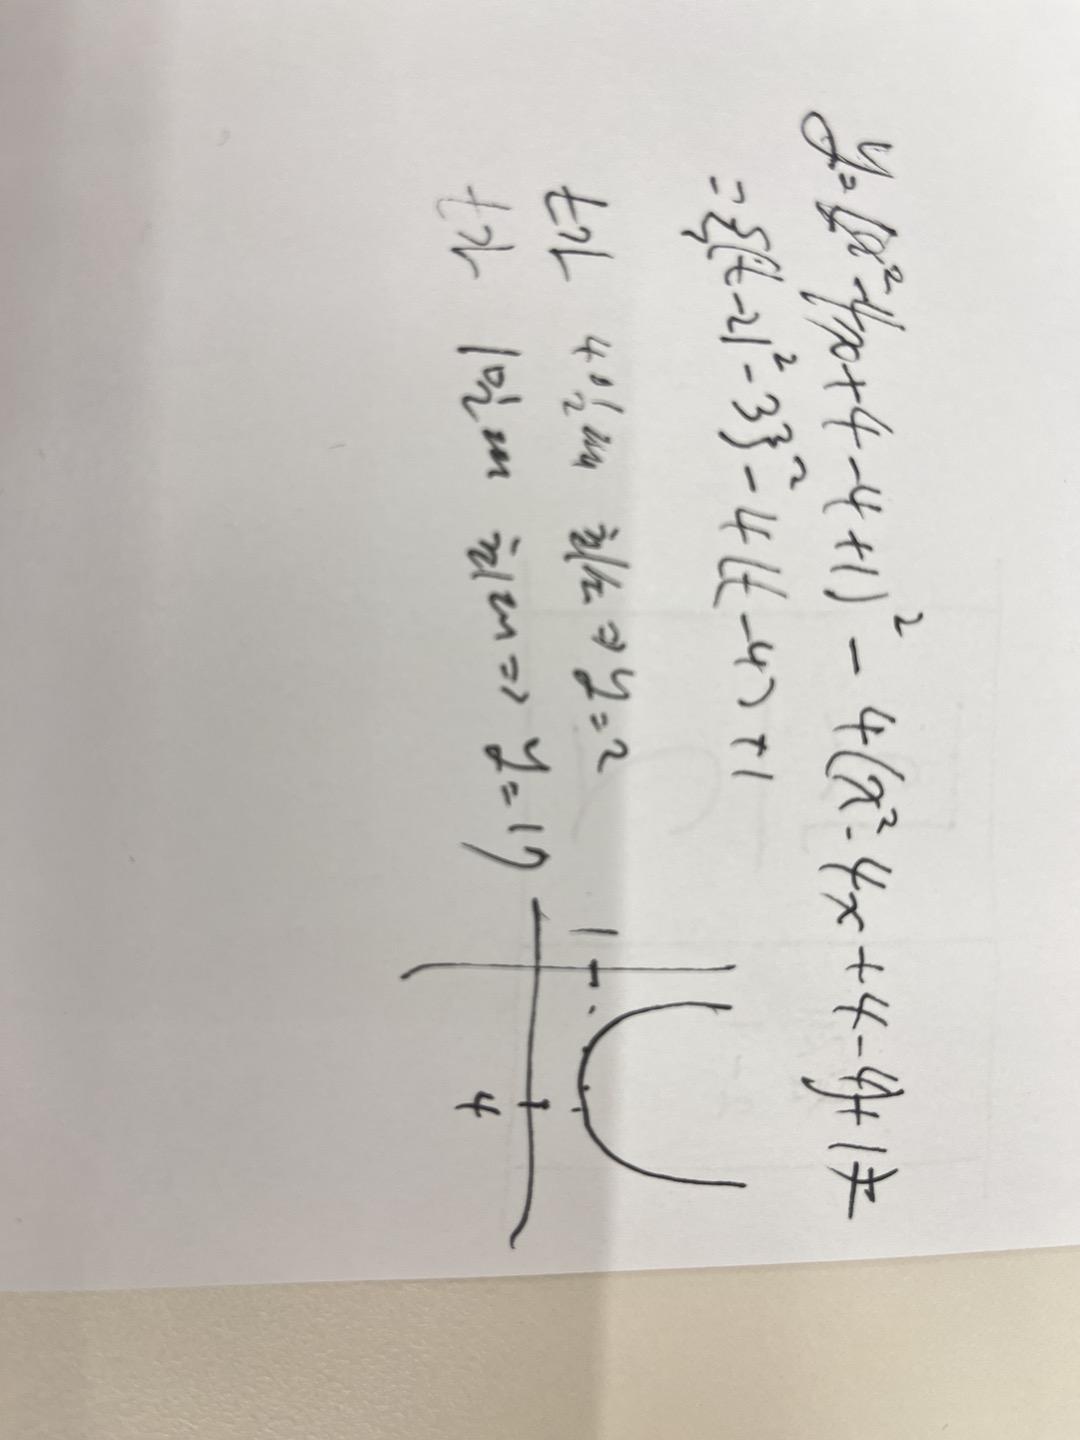 y=(x²-4x+4-4+1)²-4(x²-4x+4-4)+1
={(t-2)²-3}²-4(t-4)+1
t가 4일 때 최소 ⇒ y=2
t가 1일 때 최대 ⇒ y=17
1
4